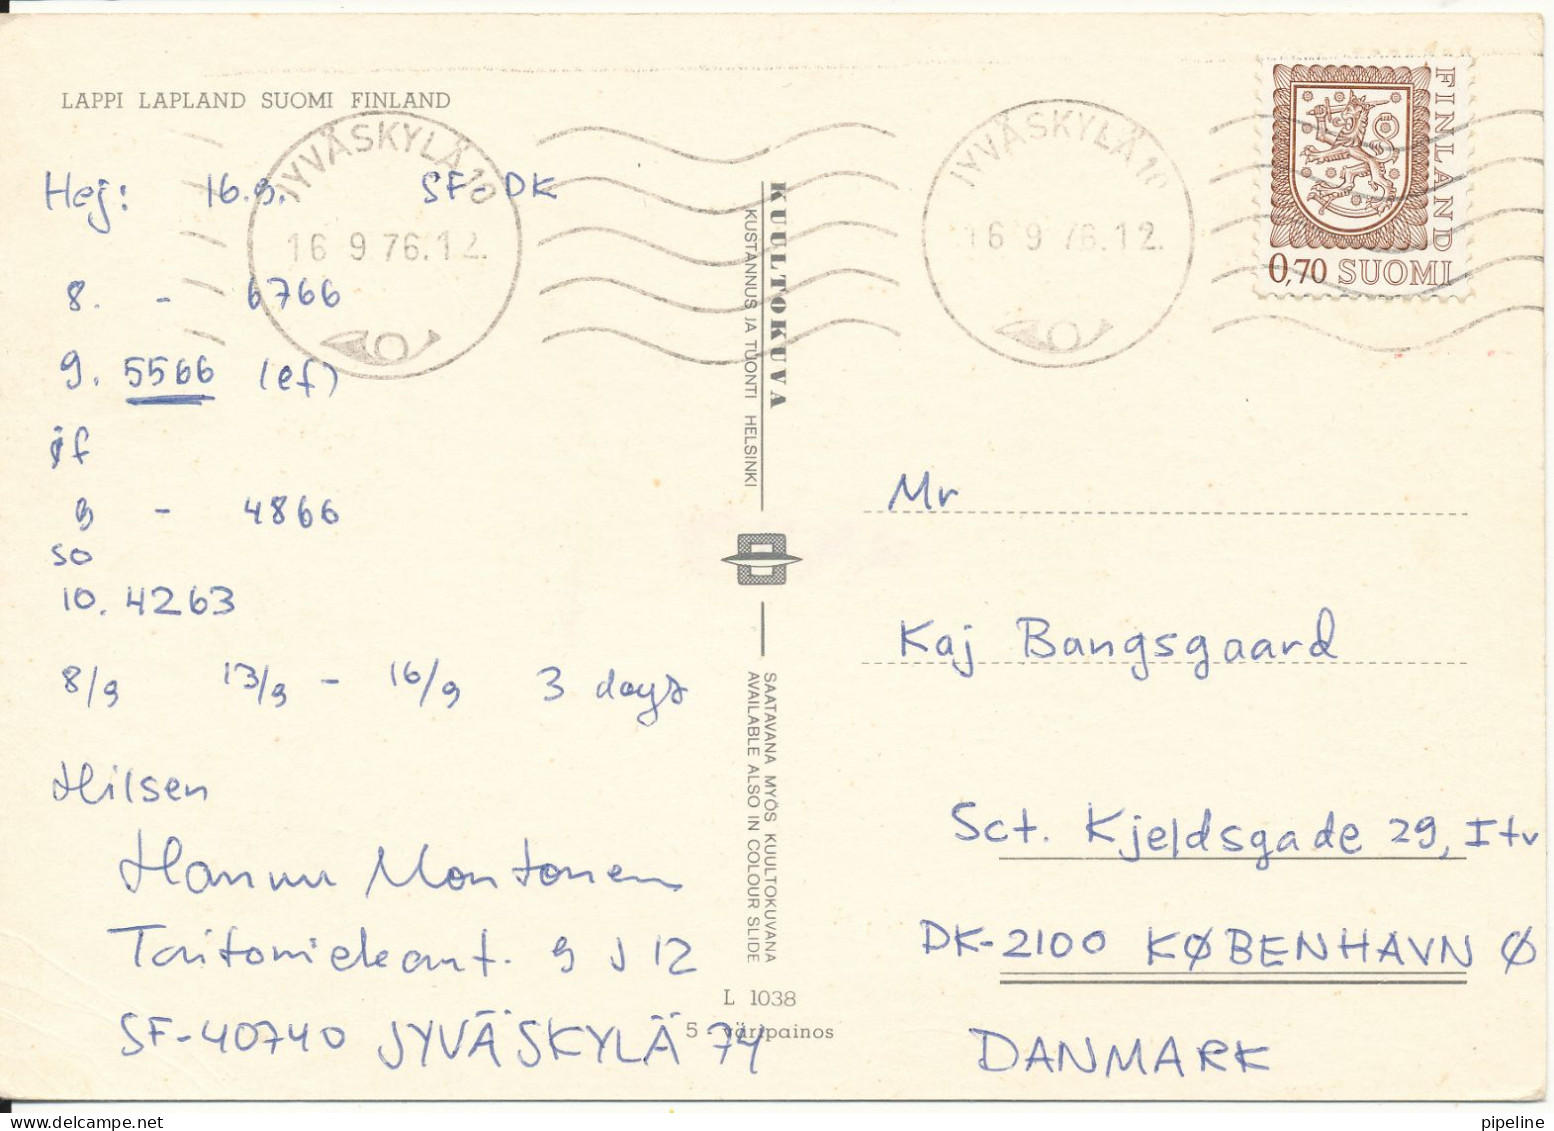 LAPPI LAPLAND SUOMI FINLAND
Hej: 16.9. SF DK
8. - 6766
9. 5566 (ef)
if
9 - 4866
so
10. 4263
8/9 13/9 - 16/9 3 days
Hilsen
Hannu Montonen
Taitoniekant. 9 J 12
SF-40740 JYVÄSKYLÄ 74
JYVÄSKYLÄ 10
16 9 76.12.
KUULTOKUVA
KUSTANNUS JA TUONTI HELSINKI
SAATAVANA MYÖS KUULTOKUVANA
AVAILABLE ALSO IN COLOUR SLIDE
L 1038
5 - väripainos
JYVÄSKYLÄ 10
16 9 76.12.
FINLAND
0,70 SUOMI
Mr
Kaj Bangsgaard
Sct. Kjeldsgade 29, Itv
DK-2100 KØBENHAVN Ø
DANMARK
pipeline